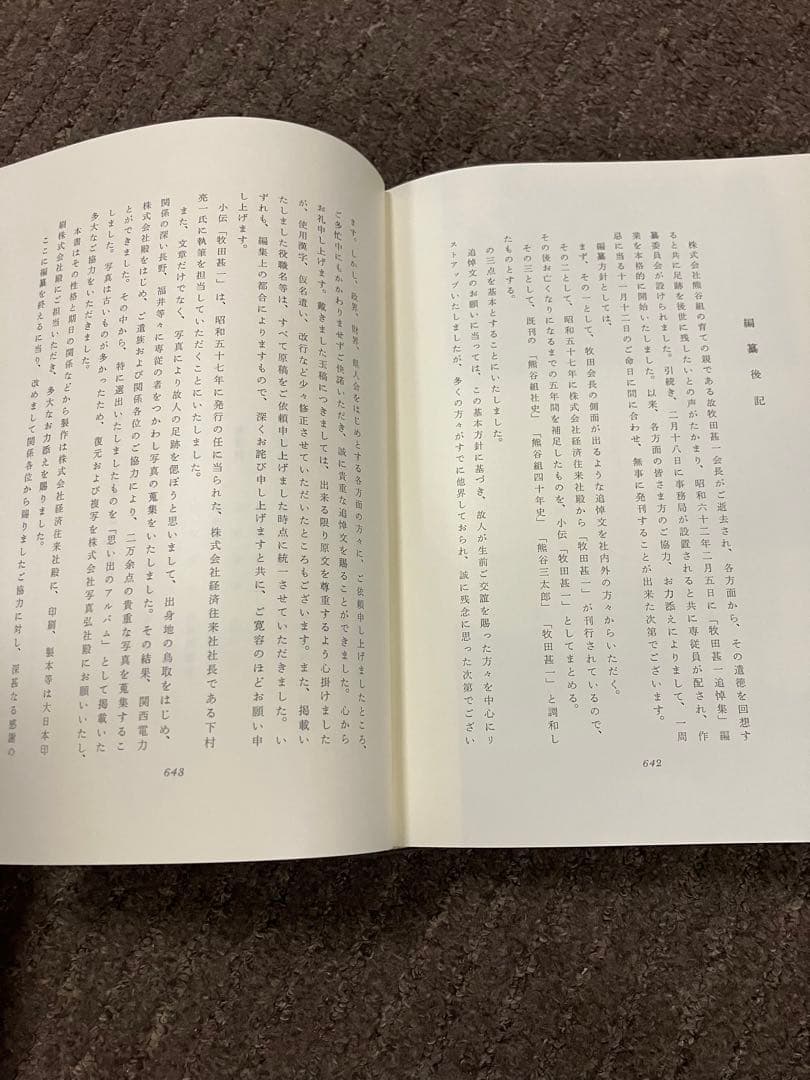 編纂後記
株式会社熊谷組の育ての親である故牧田甚一会長がご逝去され、各方面から、その遺徳を回想す
ると共に足跡を後世に残したいとの声がたかまり、昭和六十二年二月五日に「牧田甚一追悼集」編
纂委員会が設けられました。引続き、二月十八日に事務局が設置されると共に専従員が配され、作
業を本格的に開始いたしました。以来、各方面の皆さま方のご協力、お力添えによりまして、一周
忌に当る十一月十二日のご命日に間に合わせ、無事に発刊することが出来た次第でございます。
編纂方針としては、
まず、その一として、牧田会長の側面が出るような追悼文を社内外の方々からいただく。
その二として、昭和五十七年に株式会社経済往来社殿から「牧田甚一」が刊行されているので、
その後お亡くなりになるまでの五年間を補足したものを、小伝「牧田甚一」としてまとめる。
その三として、既刊の「熊谷組社史」「熊谷組四十年史」「熊谷三太郎」「牧田甚一」と調和し
たものとする。
の三点を基本とすることにいたしました。
追悼文のお願いに当っては、この基本方針に基づき、故人が生前ご交誼を賜った方々を中心にリ
ストアップいたしましたが、多くの方々がすでに他界しておられ、誠に残念に思った次第でござい
642
ます。しかし、政界、財界、県人会をはじめとする各方面の方々に、ご依頼申し上げましたところ、
ご多忙中にもかかわりませずご快諾いただき、誠に貴重な追悼文を賜ることができました。心から
お礼申し上げます。戴きました玉稿につきましては、出来る限り原文を尊重するよう心掛けました
が、使用漢字、仮名遣い、改行など少々修正させていただいたところもございます。また、掲載い
たしました役職名等は、すべて原稿をご依頼申し上げました時点に統一させていただきました。い
ずれも、編集上の都合によりますもので、深くお詫び申し上げますと共に、ご寛容のほどお願い申
し上げます。
小伝「牧田甚一」は、昭和五十七年に発行の任に当られた、株式会社経済往来社社長である下村
亮一氏に執筆を担当していただくことにいたしました。
また、文章だけでなく、写真により故人の足跡を偲ぼうと思いまして、出身地の鳥取をはじめ、
関係の深い長野、福井等々に専従の者をつかわし写真の蒐集をいたしました。その結果、関西電力
株式会社殿をはじめ、ご遺族および関係各位のご協力により、二万余点の貴重な写真を蒐集するこ
とができました。その中から、特に選出いたしましたものを「思い出のアルバム」として掲載いた
しました。写真は古いものが多かったため、復元および複写を株式会社写真弘社殿にお願いいたし、
多大なご協力をいただきました。
本書はその性格と期日の関係などから製作は株式会社経済往来社殿に、印刷、製本等は大日本印
刷株式会社殿にご担当いただき、多大なお力添えを賜りました。
ここに編纂を終えるに当り、改めまして関係各位から賜りましたご協力に対し、深甚なる感謝の
643